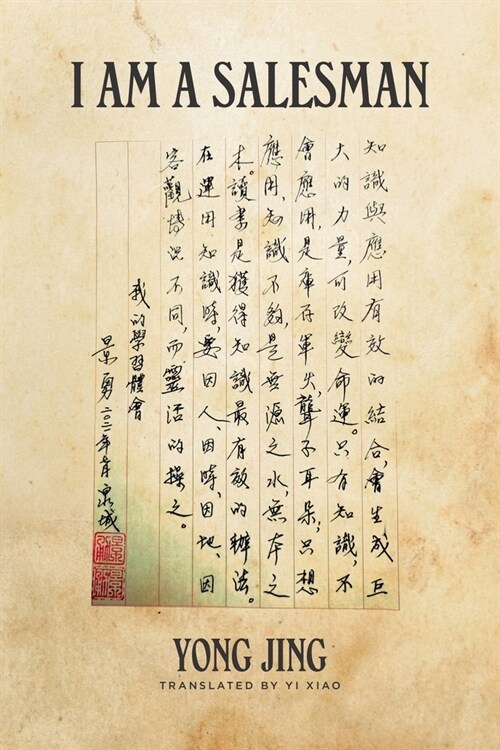 I AM A SALESMAN
知識與應用有效的結合,會生成巨
大的力量,可改變命運。只有知識,不
會應用,是庫存軍火,聾子耳朵,只想
應用,知識不夠,是無源之水,無本之
木。讀書是獲得知識最有效的辦法。
在運用知識時,要因人、因時、因地、因
客觀情況不同,而靈活的操之。
我的學習體會
景勇二〇二一年 泉城
YONG JING
TRANSLATED BY YI XIAO